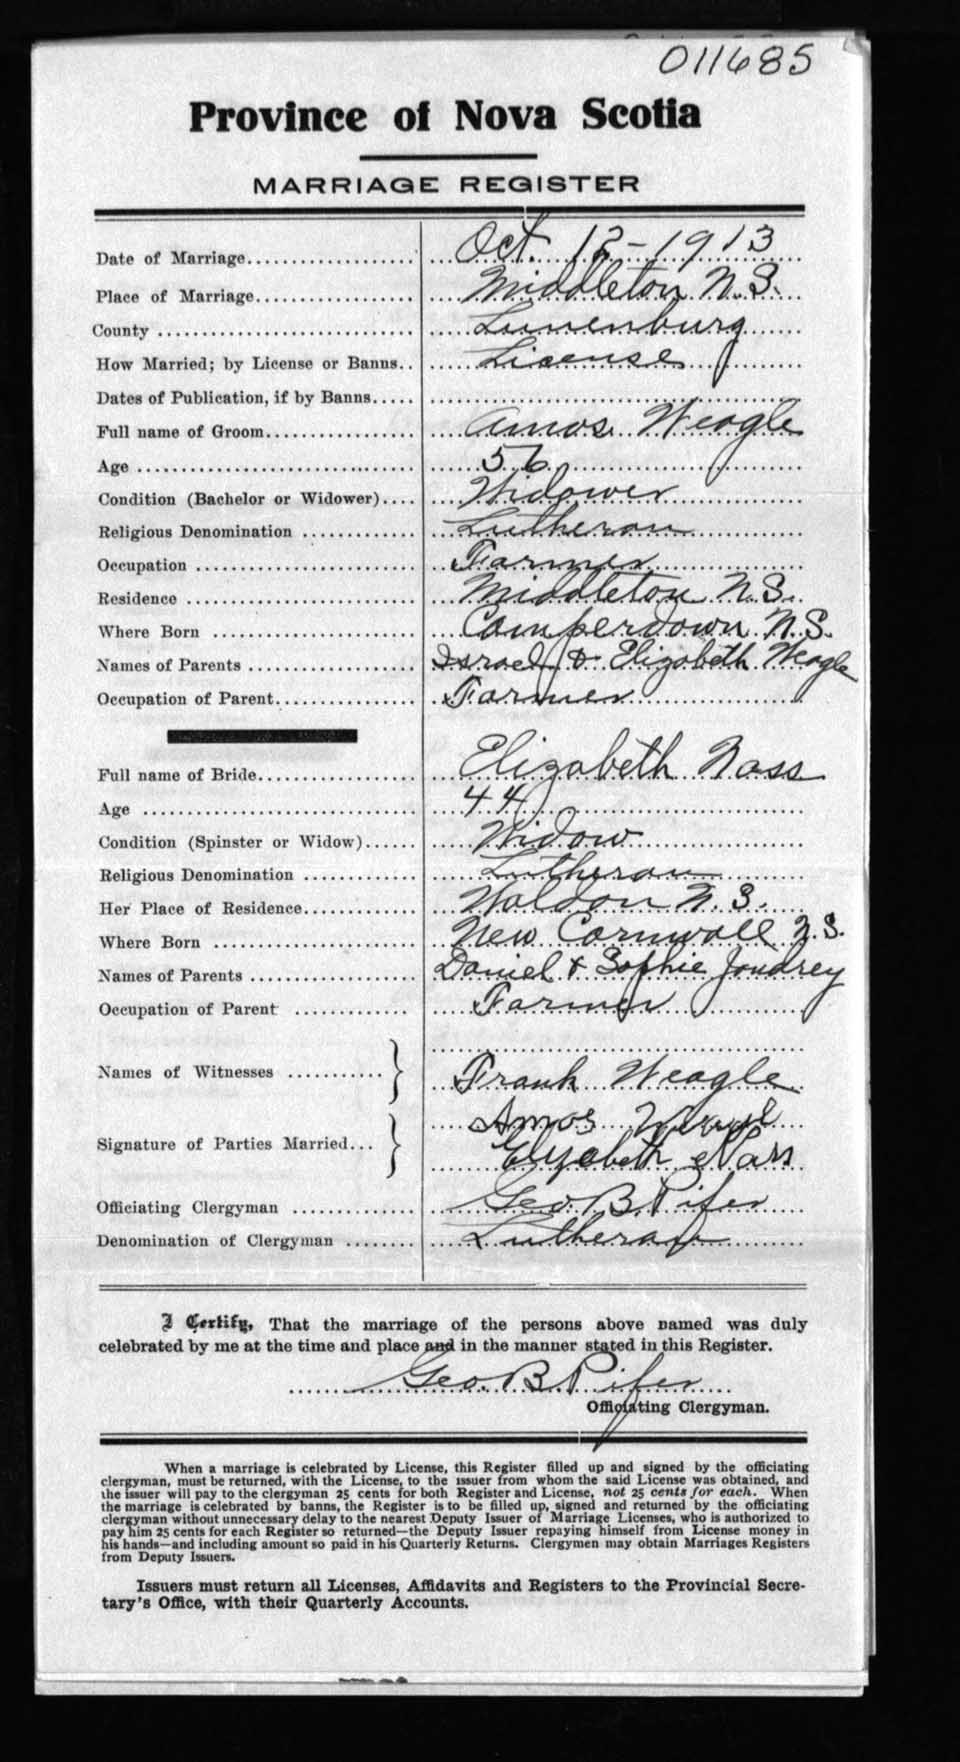 011685
Province of Nova Scotia
MARRIAGE REGISTER
Date of Marriage.................. Oct. 12-1913
Place of Marriage.................. Middleton N.S.
County .................. Lunenburg
How Married; by License or Banns.. License
Dates of Publication, if by Banns.....
Full name of Groom.................. Amos Weagle
Age .................. 56
Condition (Bachelor or Widower).... Widower
Religious Denomination ............. Lutheran
Occupation .................. Farmer
Residence .................. Middleton N.S.
Where Born .................. Camperdown N.S.
Names of Parents .................. Israel & Elizabeth Weagle
Occupation of Parent.................. Farmer
Full name of Bride.................. Elizabeth Nass
Age .................. 44
Condition (Spinster or Widow)...... Widow
Religious Denomination ............. Lutheran
Her Place of Residence............. Waldon N.S.
Where Born .................. New Cornwall N.S.
Names of Parents .................. Daniel & Sophie Joudrey
Occupation of Parent ............. Farmer
Names of Witnesses ............ Frank Weagle
Amos
Signature of Parties Married...
Elyzebeth Nass
Officiating Clergyman ............. Geo. B. Pifer
Denomination of Clergyman ........ Lutheran
I Certify, That the marriage of the persons above named was duly
celebrated by me at the time and place and in the manner stated in this Register.
Geo. B. Pifer
Officiating Clergyman.
When a marriage is celebrated by License, this Register filled up and signed by the officiating
clergyman, must be returned, with the License, to the issuer from whom the said License was obtained, and
the issuer will pay to the clergyman 25 cents for both Register and License, not 25 cents for each. When
the marriage is celebrated by banns, the Register is to be filled up, signed and returned by the officiating
clergyman without unnecessary delay to the nearest Deputy Issuer of Marriage Licenses, who is authorized to
pay him 25 cents for each Register so returned—the Deputy Issuer repaying himself from License money in
his hands—and including amount so paid in his Quarterly Returns. Clergymen may obtain Marriages Registers
from Deputy Issuers.
Issuers must return all Licenses, Affidavits and Registers to the Provincial Secre-
tary's Office, with their Quarterly Accounts.